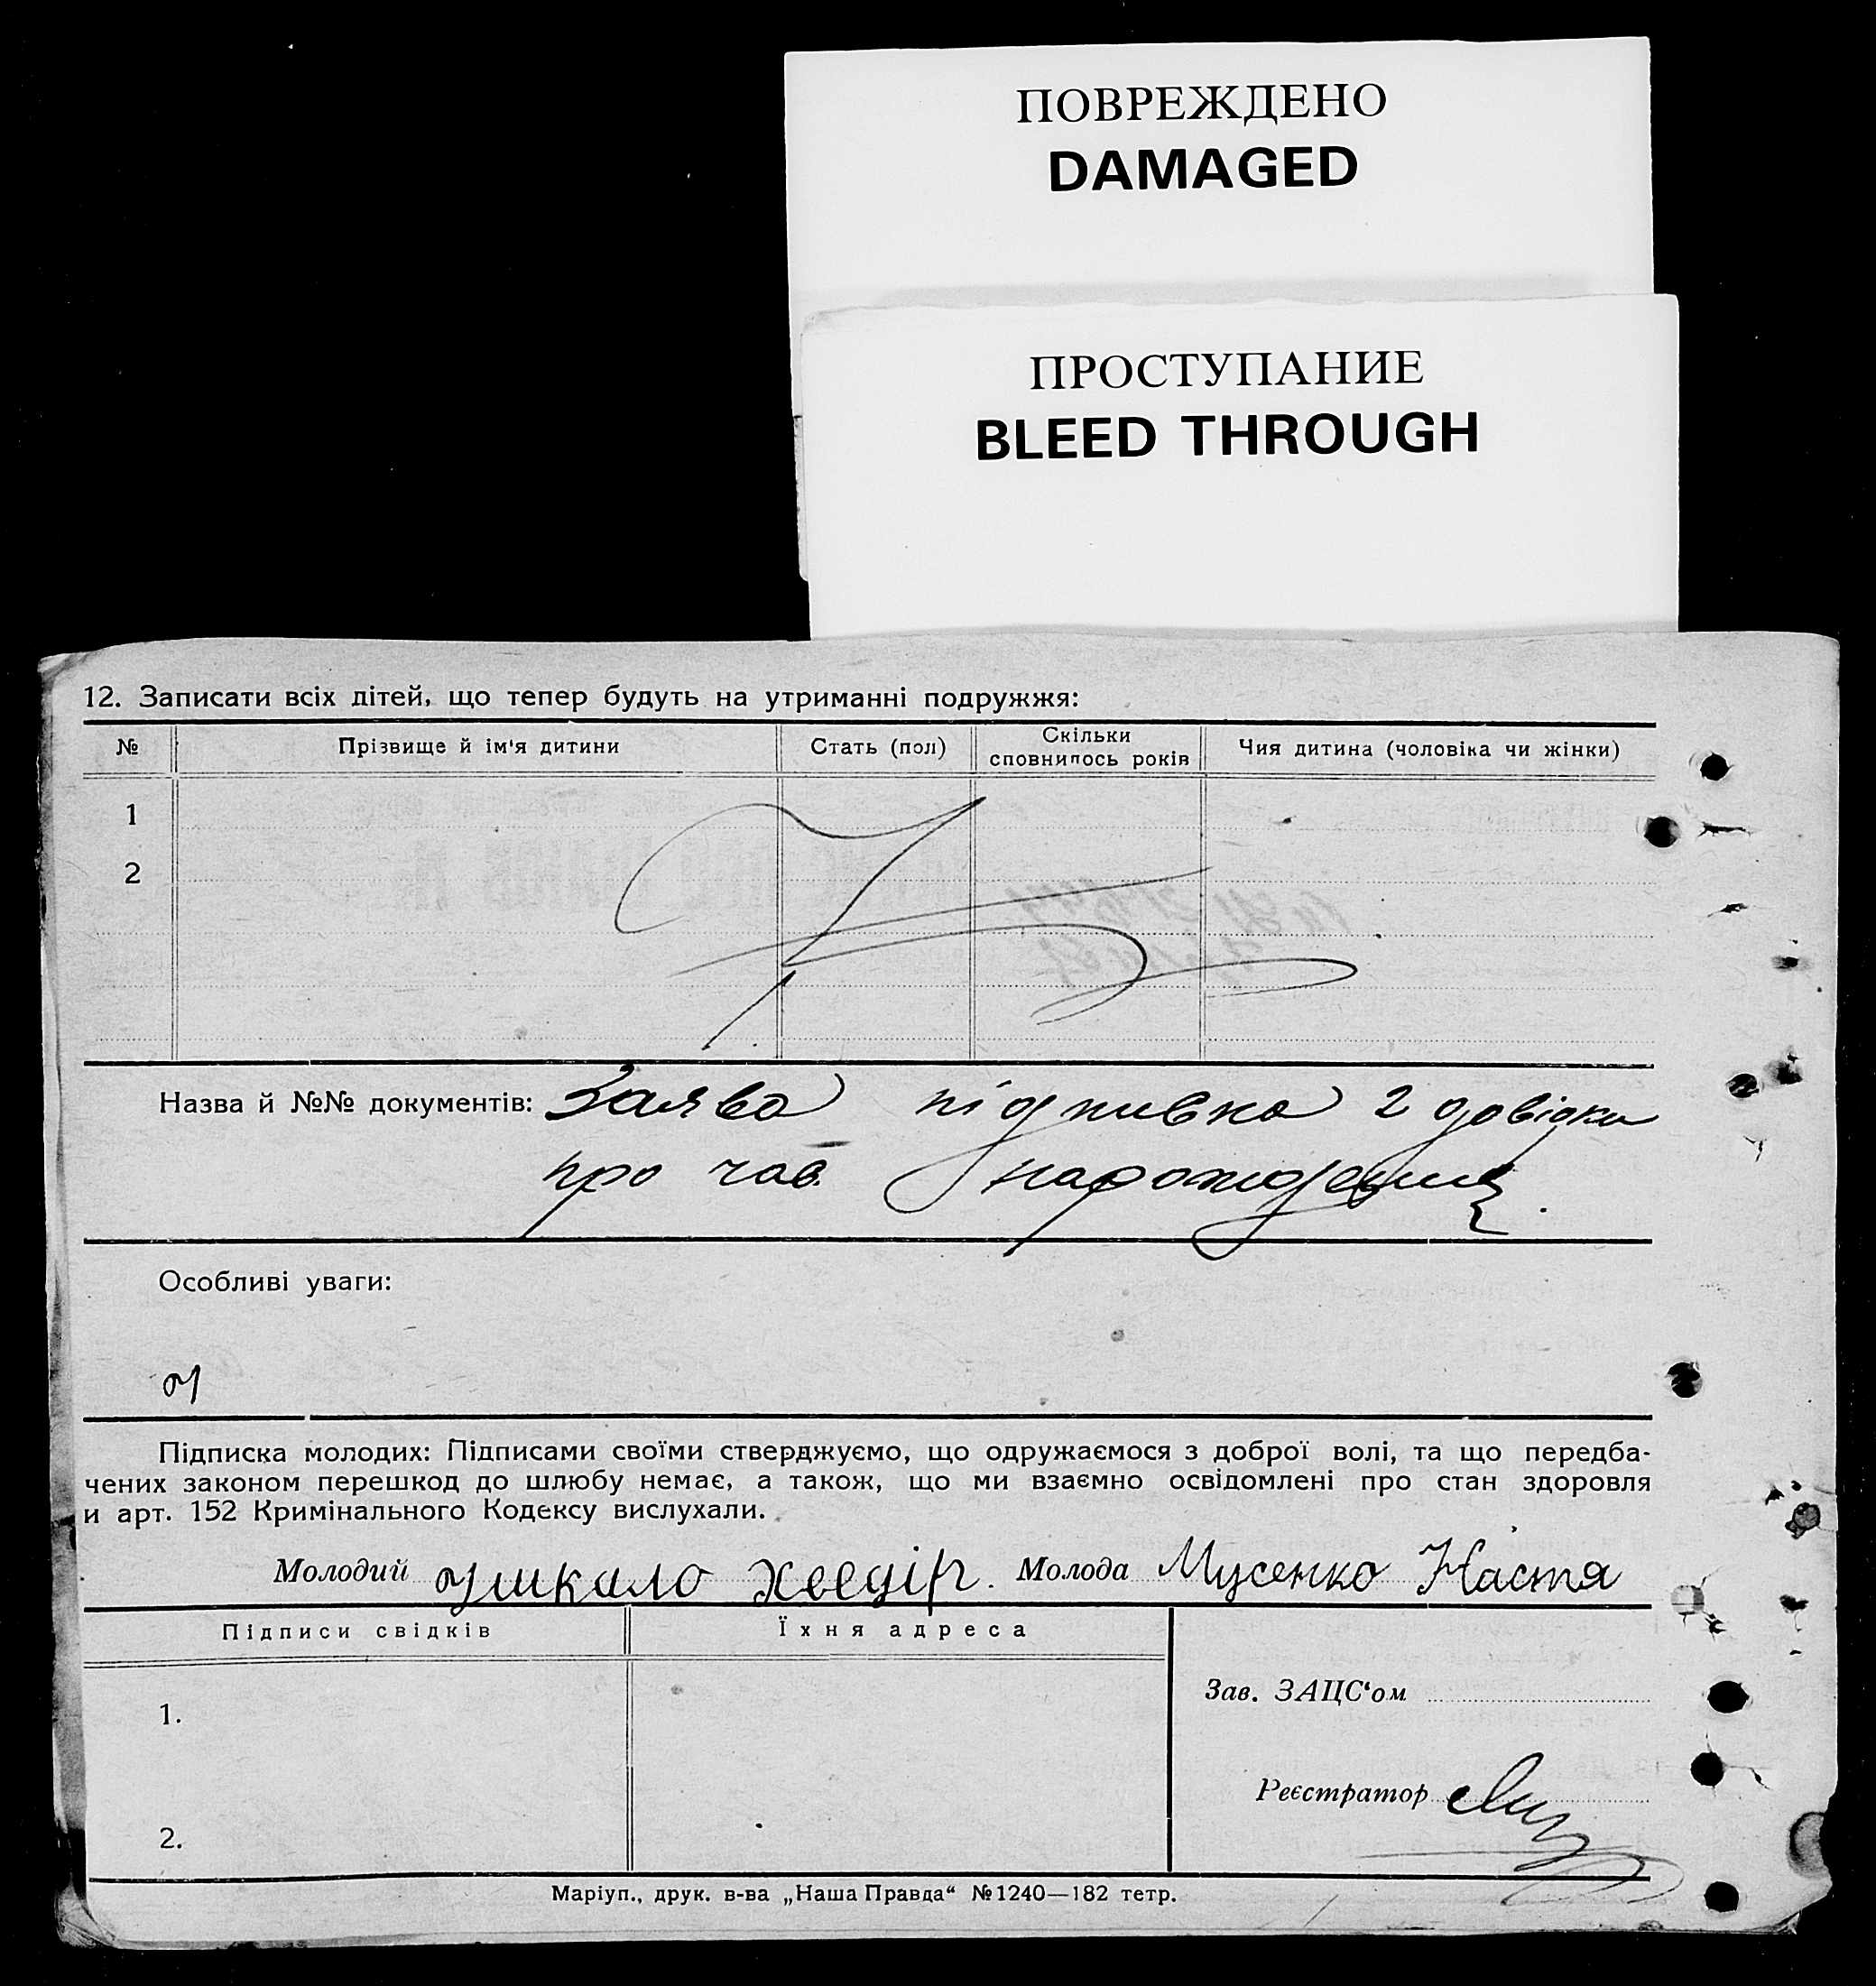 ПОВРЕЖДЕНО
DAMAGED
ПРОСТУПАНИЕ
BLEED THROUGH
12. Записати всіх дітей, що тепер будуть на утриманні подружжя:
№ Прізвище й ім'я дитини Стать (пол) Скільки сповнилось років Чия дитина (чоловіка чи жінки)
1
2
Назва й №№ документів: Заява підписка 2 довідки
про час народження
Особливі уваги:
Підписка молодих: Підписами своїми стверджуємо, що одружаємося з доброї волі, та що передба-
чених законом перешкод до шлюбу немає, а також, що ми взаємно освідомлені про стан здоровля
и арт. 152 Кримінального Кодексу вислухали.
Молодий Хведір. Молода Мусенко Настя
Підписи свідків Їхня адреса
Зав. ЗАЦС‘ом
1.
Реєстратор
2.
Маріуп., друк. в-ва „Наша Правда“ №1240—182 тетр.